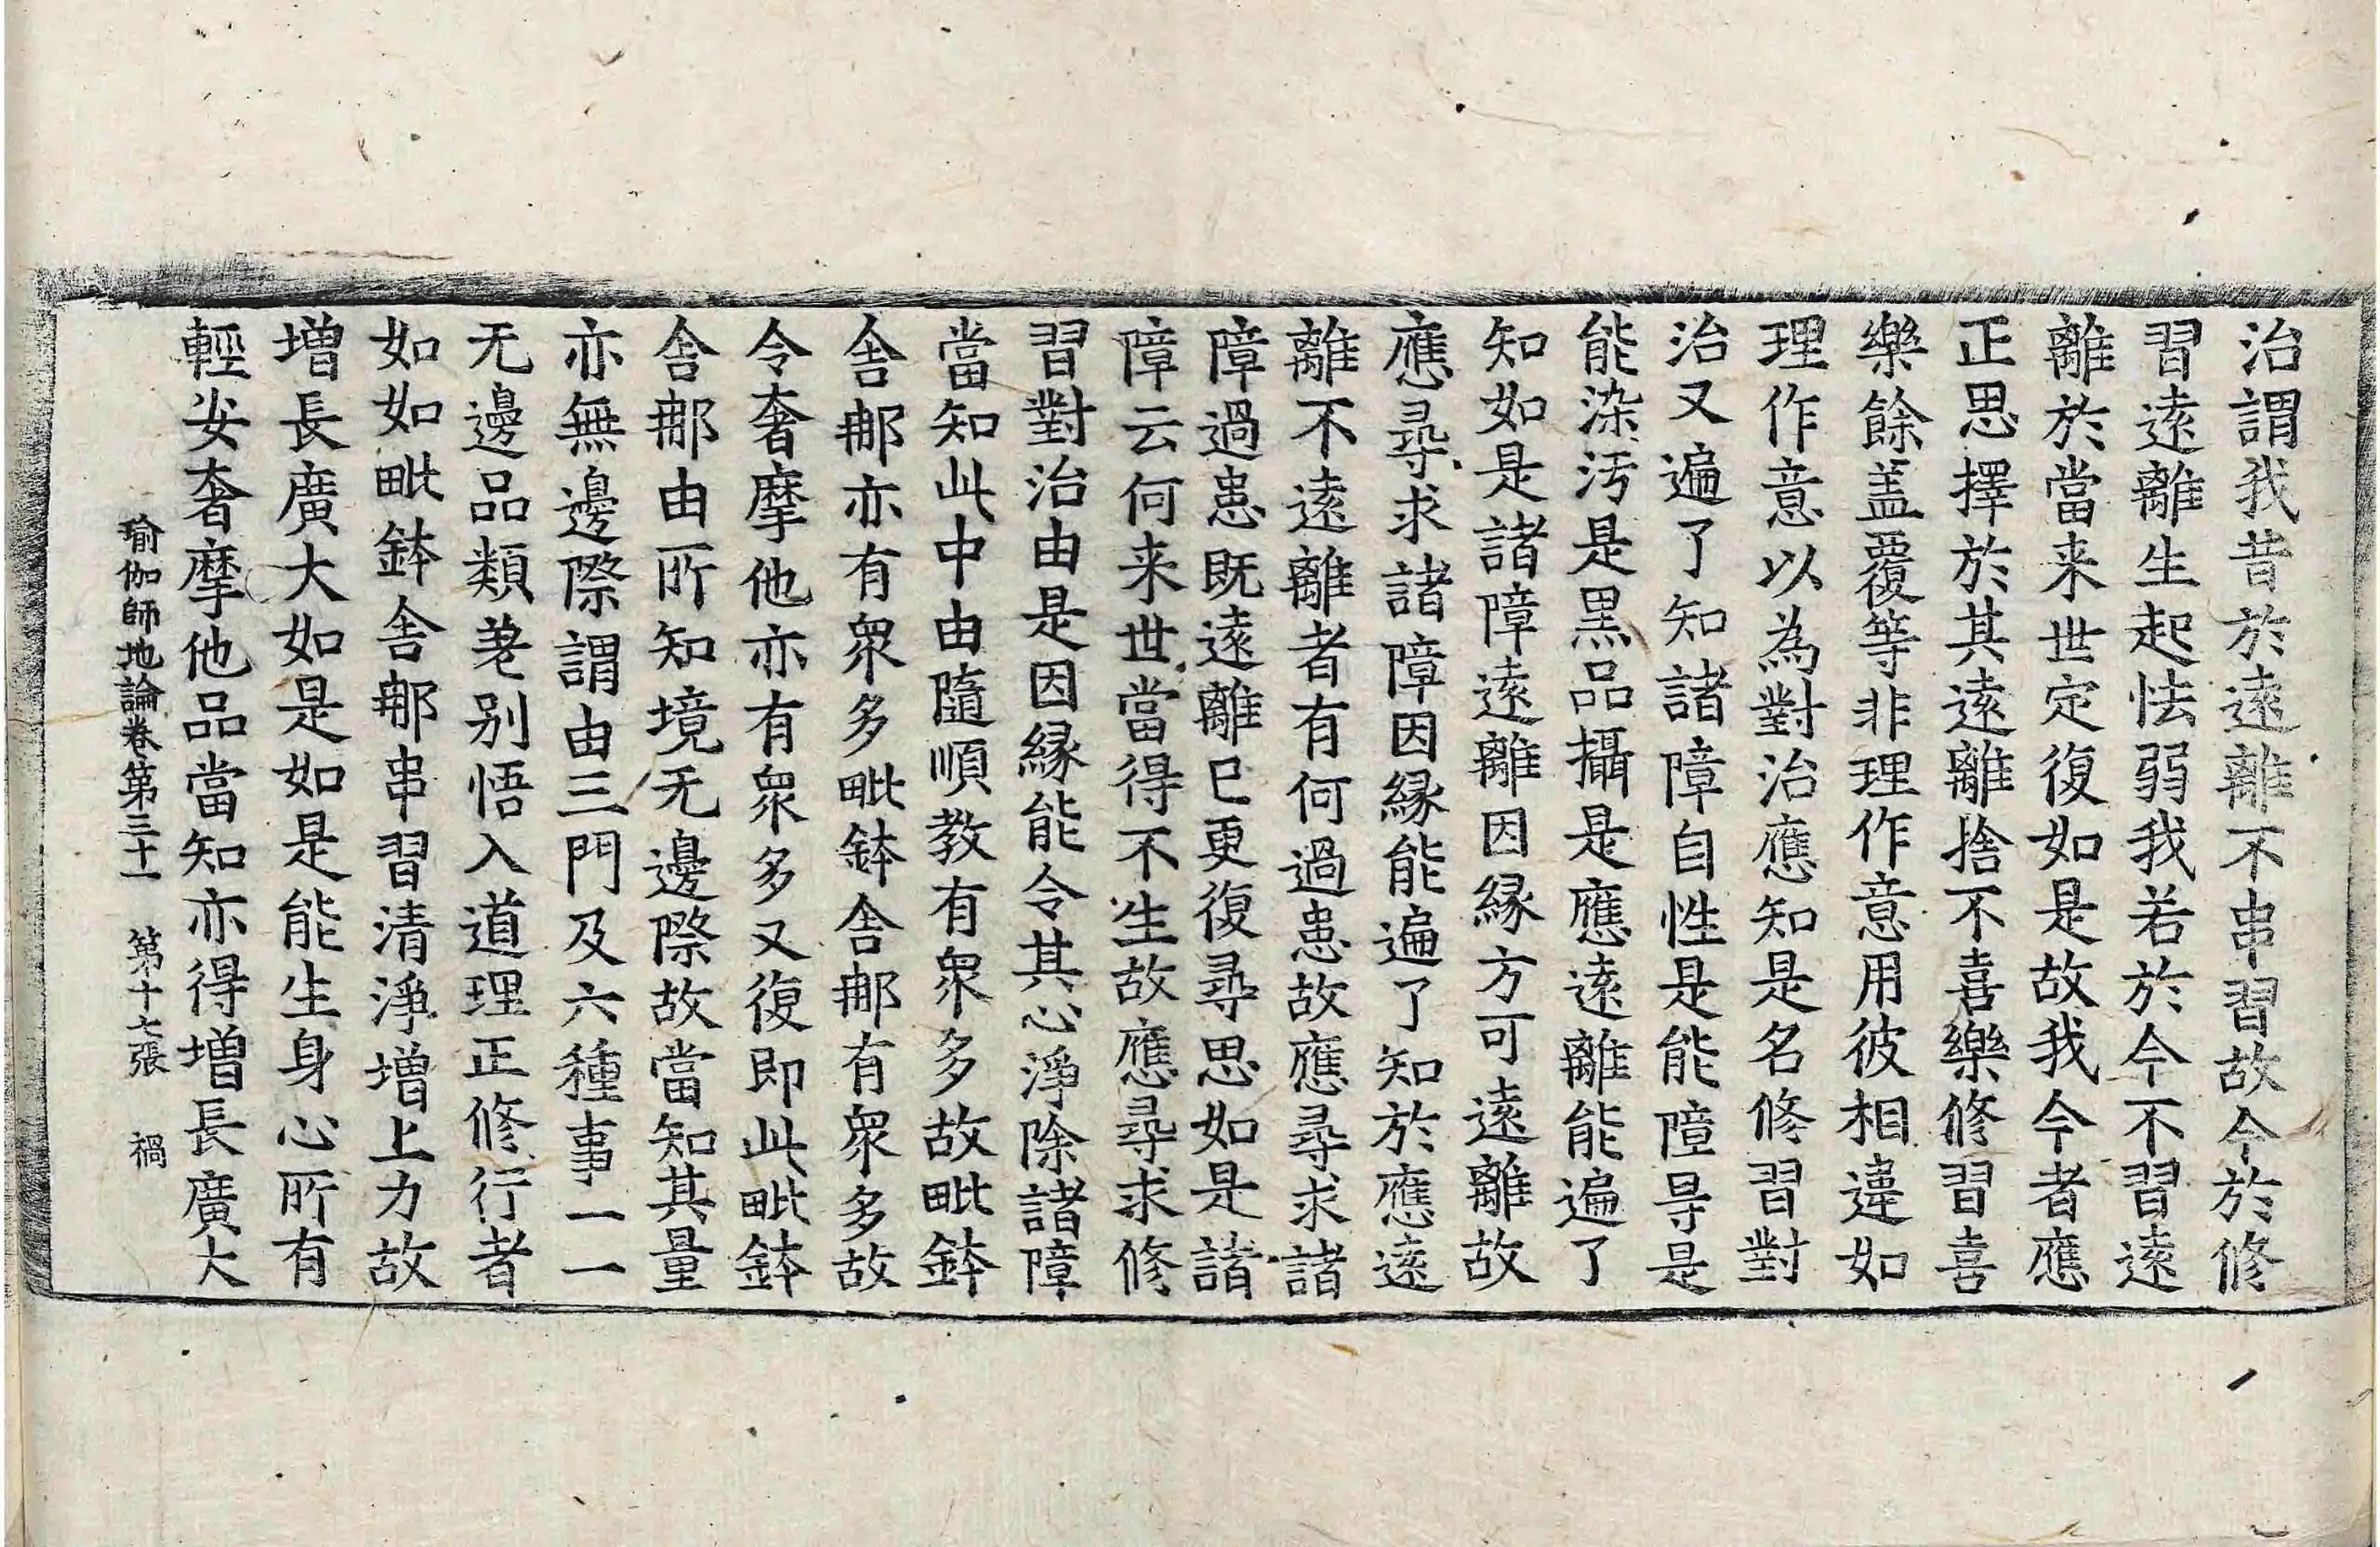 治謂我昔於遠離不串習故今於修
習遠離生起怯弱我若於今不習遠
離於當来世定復如是故我今者應
正思擇於其遠離捨不喜樂修習喜
樂餘盖覆等非理作意用彼相違如
理作意以為對治應知是名修習對
治又遍了知諸障自性是能障㝵是
能染汚是黑品攝是應遠離能遍了
知如是諸障遠離因縁方可遠離故
應尋求諸障因縁能遍了知於應遠
離不遠離者有何過患故應尋求諸
障過患既遠離已更復尋思如是諸
障云何来世當得不生故應尋求修
習對治由是因縁能令其心淨除諸障
當知此中由隨順教有衆多故毗鉢
舍那亦有衆多毗鉢舍那有衆多故
令奢摩他亦有衆多又復即此毗鉢
舍那由所知境无邊際故當知其量
亦無邊際謂由三門及六種事一一
无邊品類差别悟入道理正修行者
如如毗鉢舍那串習清淨增上力故
增長廣大如是如是能生身心所有
輕安奢摩他品當知亦得增長廣大
瑜伽師地論卷第三十一 第十七張 禍